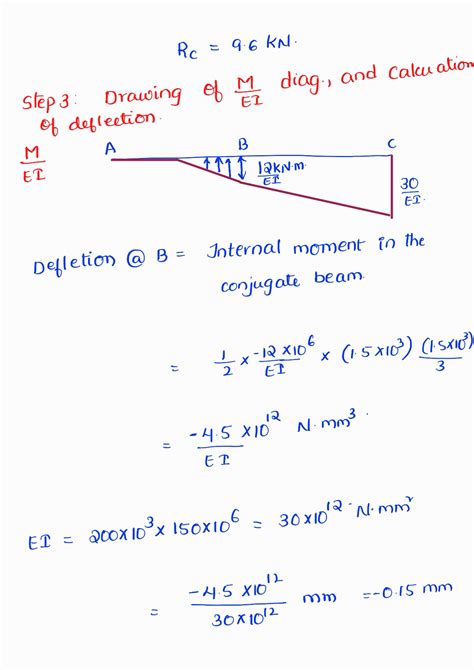 Rc = 9.6 KN.
Step 3: Drawing of M/EI diag., and Calculation
of deflection.
M/EI
A B C
12kN.m/EI
30/EI.
Defletion @ B = Internal moment in the
conjugate beam.
= 1/2 x -12 x10^6/EI x (1.5 x10^3) (1.5x10^3)/3
= -4.5 x10^12/EI N.mm^3.
EI = 200x10^3 x 150x10^6 = 30x10^12. N.mm^2
= -4.5 x10^12/30x10^12 mm = -0.15 mm